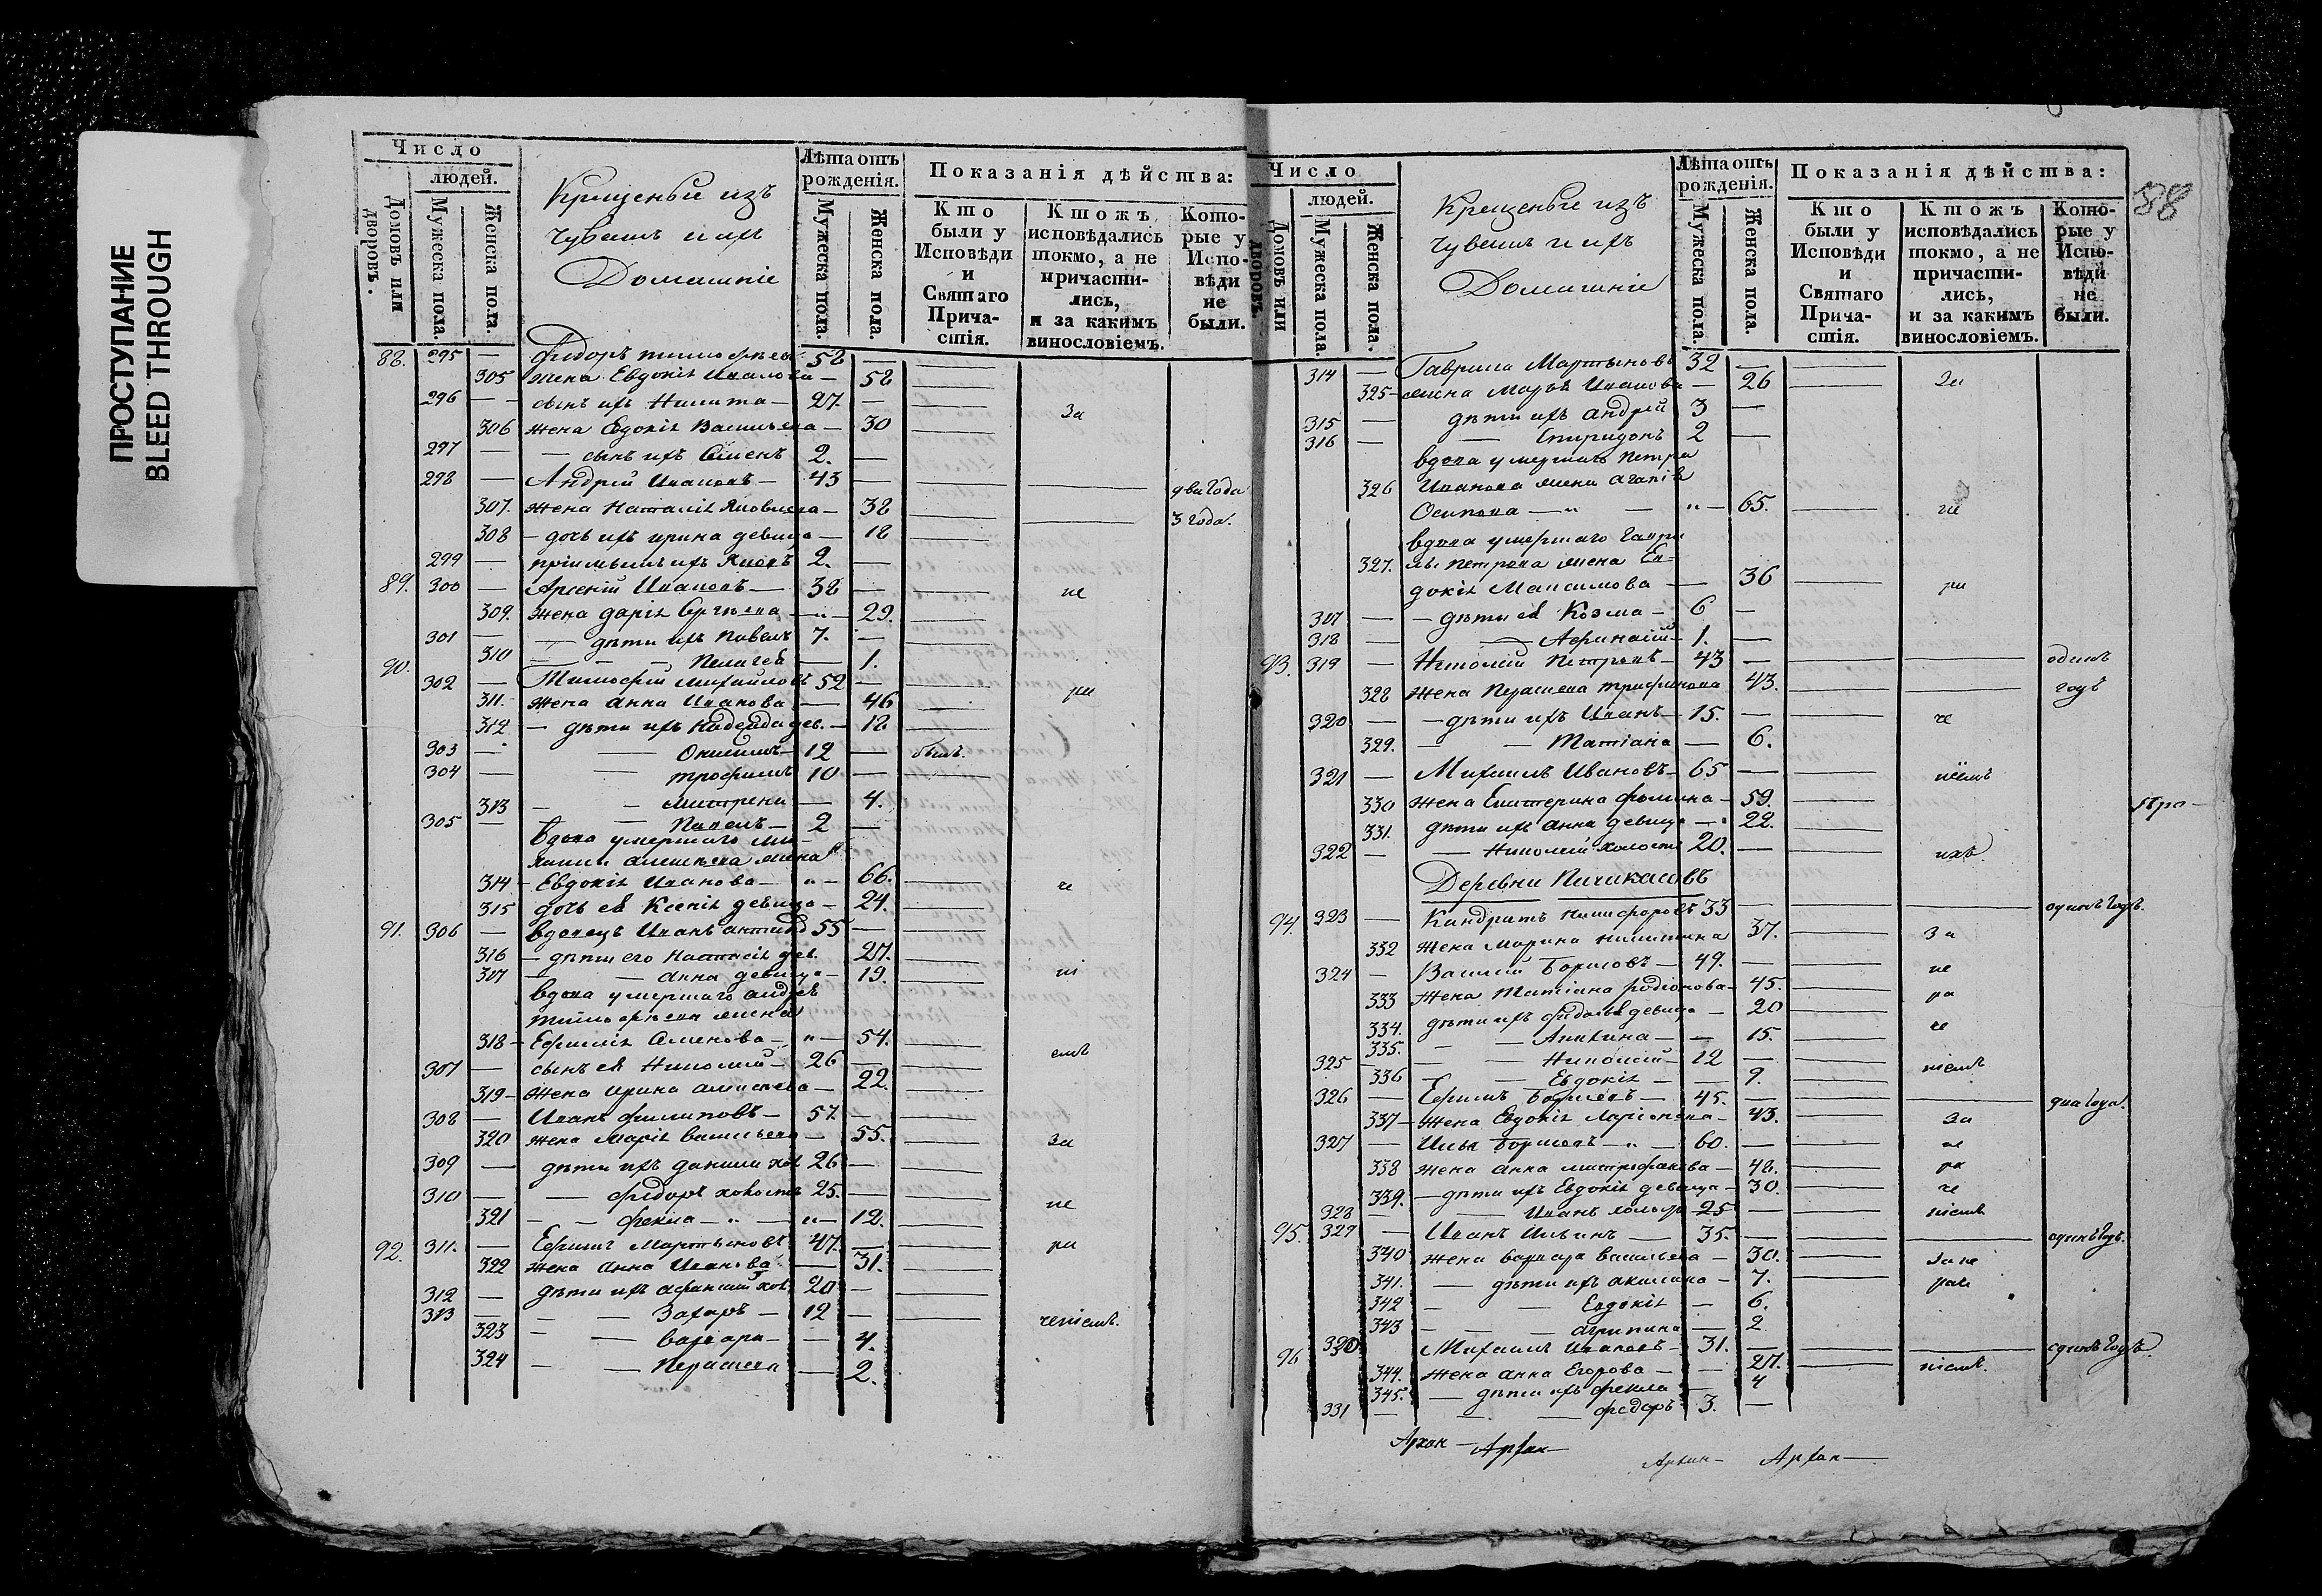 ПРОСТУПАНИЕ
BLEED THROUGH
Число
людей.
Домовъ или дворовъ.
Мужеска пола.
Женска пола.
Крещеные изъ
чувашъ и ихъ
Домашніе
Лѣта отъ рожденія.
Мужеска пола.
Женска пола.
Показанія дѣйства:
Кто были у Исповѣди и Святаго Прича-стія.
Ктожъ исповѣдались токмо, а не причасти-лись, и за какимъ винословіемъ.
Кото-рые у Испо-вѣди не были.
88. 295 — Федоръ Тимофѣевъ 58 —
305 жена Евдокія Иванова — 58
296 — сынъ ихъ Никита — 27. —
306 жена Евдокія Васильева — 30
За
297 — сынъ ихъ Сименъ 2. —
298 — Андрей Ивановъ — 43 — два года
307. жена Наталія Яковлева — 38 3 года.
308 — дочь ихъ ирина девица — 18
299 — ихъ Яковъ 2. —
89. 300 — Арсеній Ивановъ — 38 — не
309. жена дарія Сергѣева — 29.
301 — дѣти ихъ Павелъ 7. —
310 — Пелагея — 1.
90. 302 — Тимофей михайловъ 52 —
311. жена анна Иванова — 46 ра
312 — дѣти ихъ надежда дев. — 18
303 — 12 — былъ.
304 — трофимъ 10 —
313 — матрена — 4.
305 — Павелъ — 2 —
вдова умершаго ми-
хаила алексѣева жена
314 — Евдокія Иванова — 66. че
315 дочь ея Ксенія девица — 24.
91. 306 — вдовецъ Иванъ 55 —
316 — дѣти его Настасія дев. 27.
317 — анна девица — 19. ні
вдова умершаго андрея
тимофѣева жена
318 — Ефимія Семенова — 54. емъ
307 — сынъ ея Николай — 26 —
319 — жена ирина алексѣева — 22.
308 — Иванъ филиповъ — 57. —
320 жена Марія васильева — 55. За
309 — дѣти ихъ данила хол 26 —
310 — федоръ холостъ 25. — не
321 — фекла — 12.
92. 311. — Ефимъ Мартыновъ 47. — ра
322 жена анна Иванова — 31.
312 — дѣти ихъ афанасій хол. 20 —
313 — Захаръ — 12 — ченіемъ.
323 — варвара — 4.
324 — Параскева — 2.
Число
людей.
Домовъ или дворовъ.
Мужеска пола.
Женска пола.
Крещеные изъ
чувашъ и ихъ
Домашніе
Лѣта отъ рожденія.
Мужеска пола.
Женска пола.
Показанія дѣйства:
Кто были у Исповѣди и Святаго Прича-стія.
Ктожъ исповѣдались токмо, а не причасти-лись, и за какимъ винословіемъ.
Кото-рые у Испо-вѣди не были.
88
314 — Гаврила Мартыновъ 32 —
325 — жена Марья Иванова — 26 За
315 — дѣти ихъ андрей 3 —
316 — Спиридонъ 2 —
вдова умершаго Петра
326 Иванова жена агапія
Осипова — 65. не
вдова умершаго Гаври
327. лы Петрова жена Ев-
докія Максимова — 36 ра
317 — дѣти ея Козма — 6 —
318 — Афанасій — 1. —
93. 319 — Николай Петровъ — 43 — одинъ
328 жена Параскева трифонова 43. годъ
320 — дѣти ихъ Иванъ — 15. — че
329. — Татіана — 6.
321 — Михаилъ Ивановъ — 65 — ніемъ
330 жена Екатерина фомина — 59.
331. дѣти ихъ анна девица — 22.
322 — Николай холостъ 20. — ихъ.
Деревни Пичикасовъ
94. 323 — Кандратъ никифоровъ 33 — одинъ годъ.
332 жена Марина никитина 37. За
324 — Василій Борисовъ — 49. — не
333 жена Татіана родіонова — 45. ра
334. дѣти ихъ девица — 20 че
335. — 15.
325 — Николай — 12 — ніемъ
336 — Евдокія — 9.
326 — Ефимъ Борисовъ — 45. — два года.
337 — жена Евдокія Ларіонова — 43. За
327 — Илья Борисовъ — 60. — не
338 жена анна митрофанова — 48. ра
339. — дѣти ихъ Евдокія девица — 30. че
328 — Иванъ 25 — ніемъ
95. 329 — Иванъ Ильинъ — 35. — одинъ годъ.
340 жена варвара васильева — 30. За не
341. — дѣти ихъ акилина — 7. ра
342 — Евдокія — 6.
343 — агрипина — 2
96 330 Михаилъ Ивановъ — 31. — одинъ годъ.
344. жена анна Егорова — 27. ніемъ.
345. — дѣти ихъ фекла 4
331 — федоръ 3. —